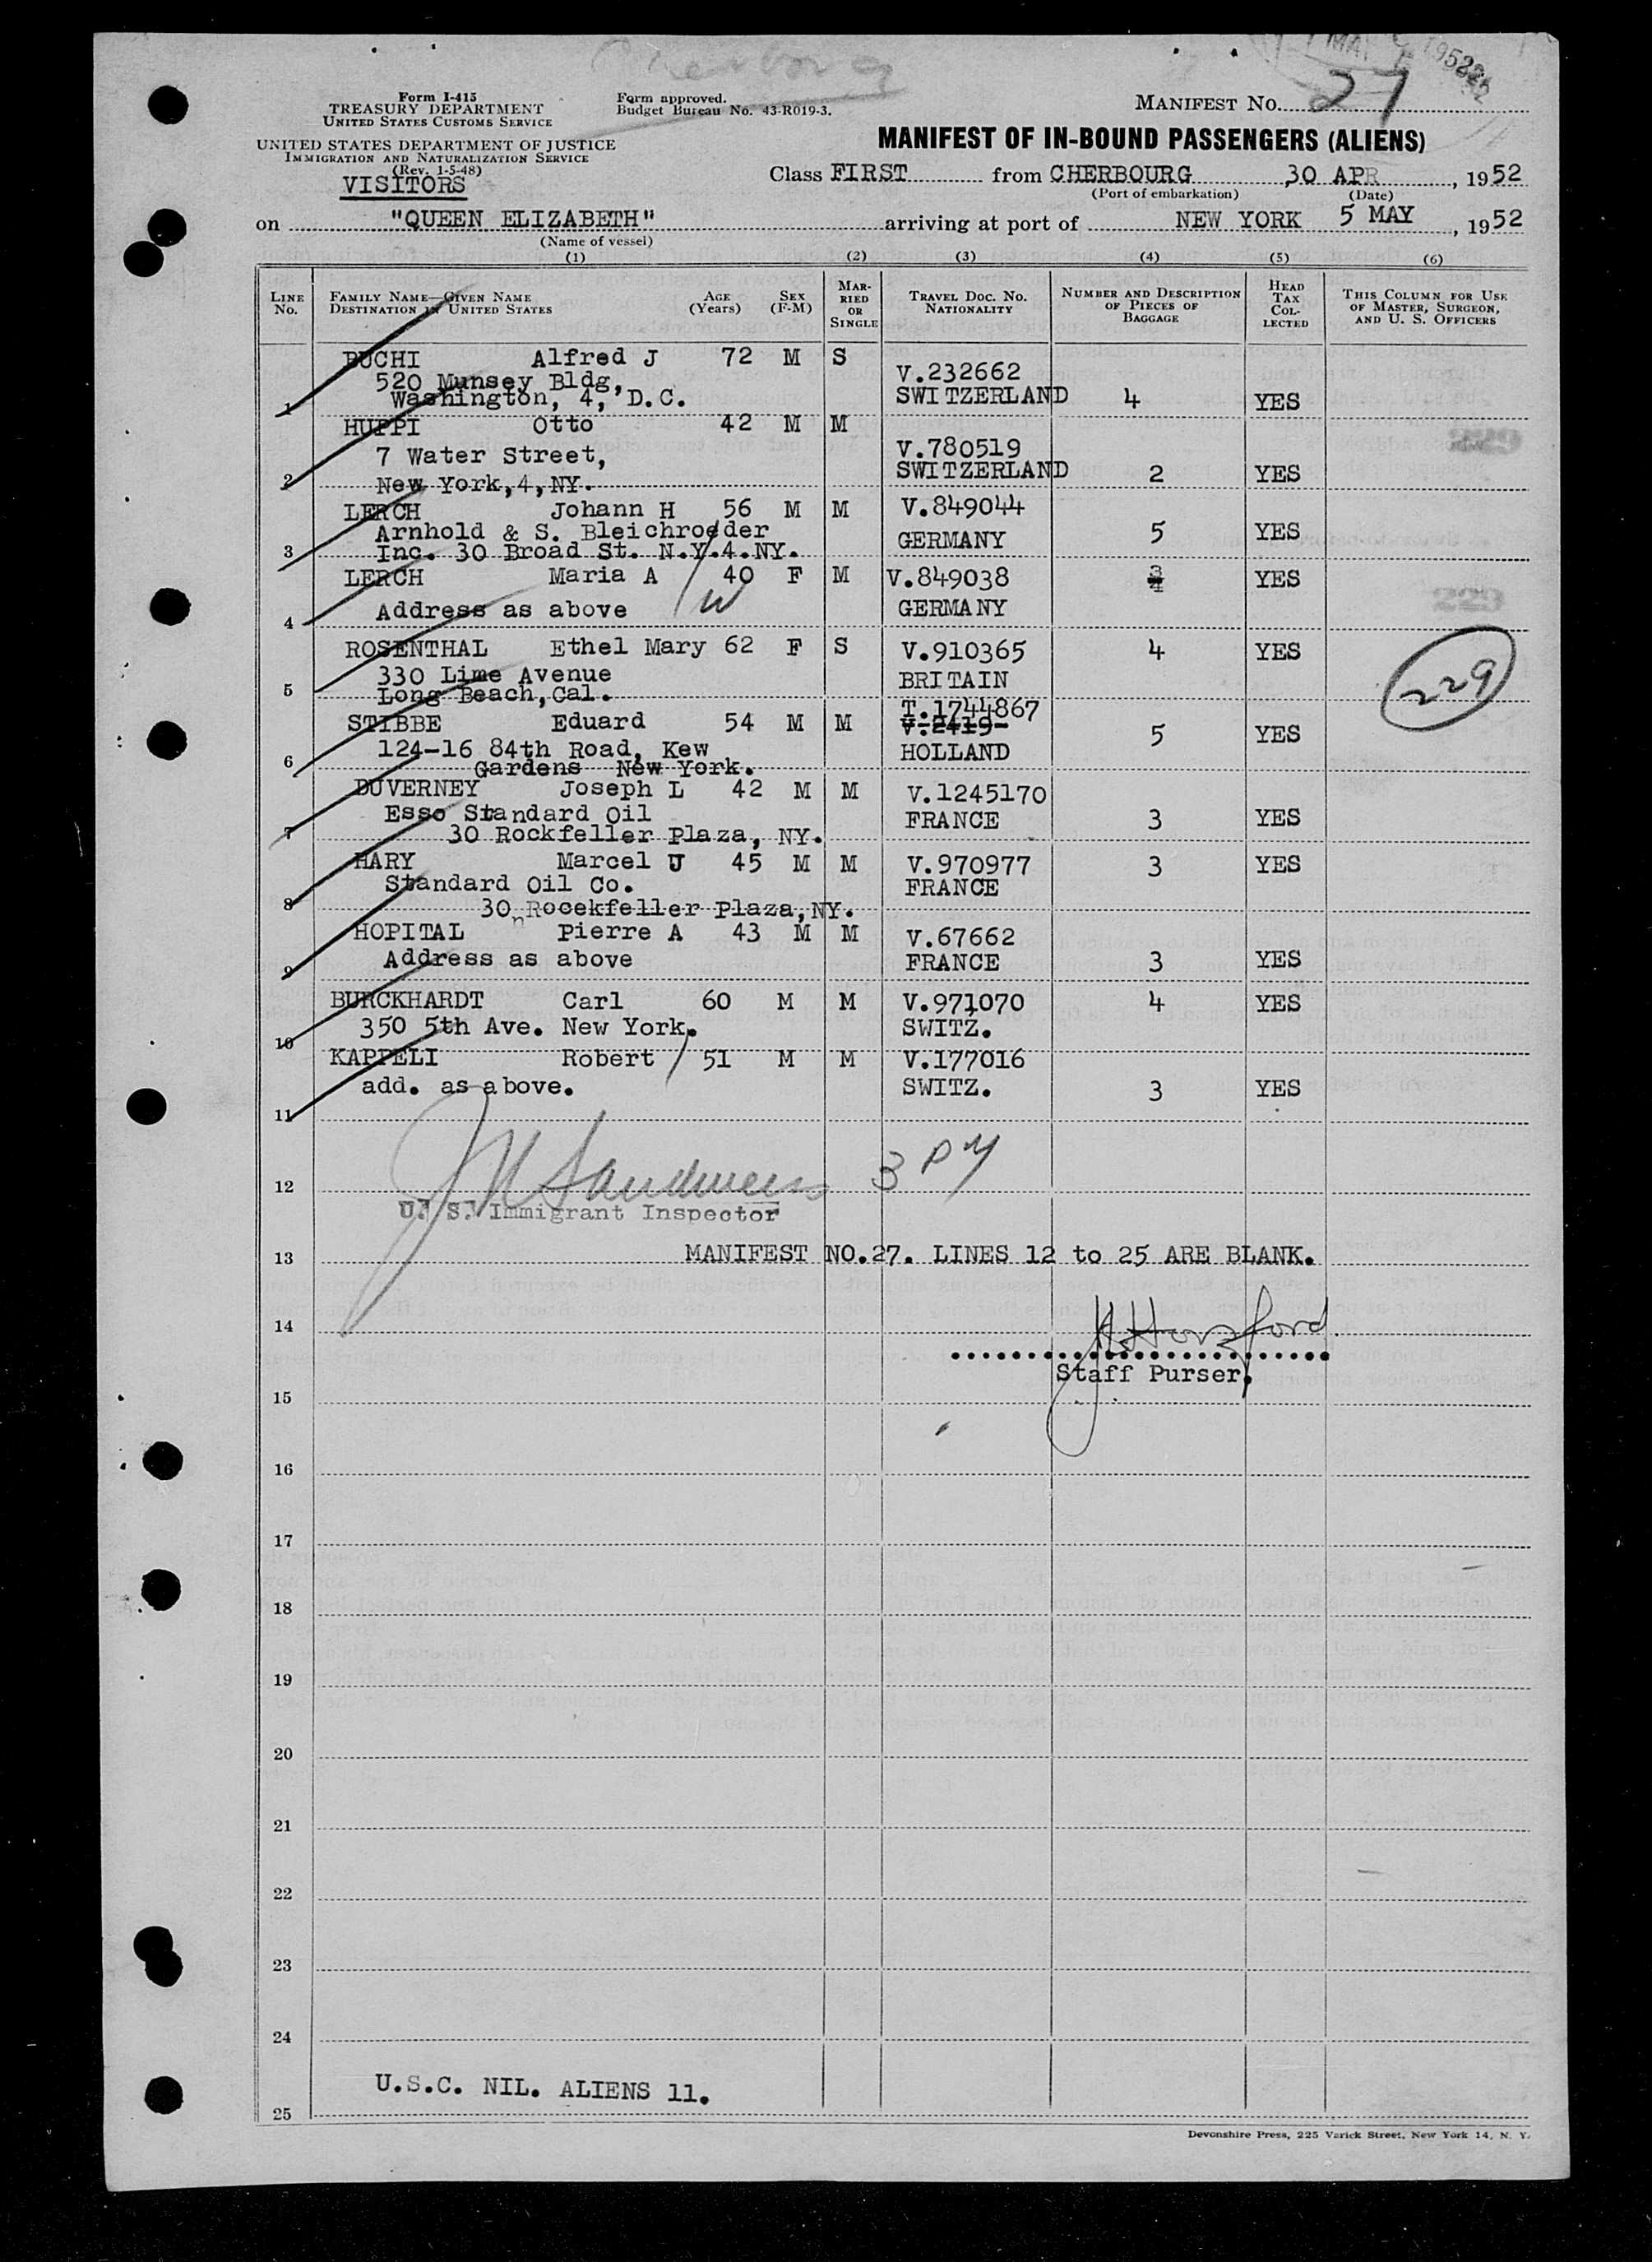 Cherbourg
1952
Form I-415
TREASURY DEPARTMENT
UNITED STATES CUSTOMS SERVICE
Form approved.
Budget Bureau No. 43-R019-3.
MANIFEST NO. 27
UNITED STATES DEPARTMENT OF JUSTICE
IMMIGRATION AND NATURALIZATION SERVICE
(Rev. 1-5-48)
VISITORS
MANIFEST OF IN-BOUND PASSENGERS (ALIENS)
Class FIRST from CHERBOURG 30 APR, 1952
(Port of embarkation) (Date)
on "QUEEN ELIZABETH" arriving at port of NEW YORK 5 MAY, 1952
(Name of vessel)
(1) (2) (3) (4) (5) (6)
LINE NO. FAMILY NAME—GIVEN NAME DESTINATION IN UNITED STATES AGE (YEARS) SEX (F-M) MARRIED OR SINGLE TRAVEL DOC. NO. NATIONALITY NUMBER AND DESCRIPTION OF PIECES OF BAGGAGE HEAD TAX COLLECTED THIS COLUMN FOR USE OF MASTER, SURGEON, AND U. S. OFFICERS
BUCHI Alfred J 72 M S
520 Munsey Bldg, V.232662
1 Washington, 4, D.C. SWITZERLAND 4 YES
HUPPI Otto 42 M M
7 Water Street, V.780519
2 New York,4,NY. SWITZERLAND 2 YES
LERCH Johann H 56 M M V.849044
Arnhold & S. Bleichroeder
3 Inc. 30 Broad St. N.Y.4.NY. GERMANY 5 YES
LERCH Maria A 40 F M V.849038 3 4 YES
W
4 Address as above GERMANY
ROSENTHAL Ethel Mary 62 F S V.910365 4 YES
330 Lime Avenue BRITAIN
5 Long Beach,Cal.
229
T.1744867
STIBBE Eduard 54 M M V.2419-
6 124-16 84th Road, Kew HOLLAND 5 YES
Gardens New York.
DUVERNEY Joseph L 42 M M V.1245170
Esso Standard Oil FRANCE 3 YES
7 30 Rockfeller Plaza, NY.
HARY Marcel J 45 M M V.970977 3 YES
Standard Oil Co. FRANCE
8 30 Rocekfeller Plaza,NY.
n
HOPITAL Pierre A 43 M M V.67662
9 Address as above FRANCE 3 YES
BURCKHARDT Carl 60 M M V.971070 4 YES
10 350 5th Ave. New York. SWITZ.
KAPPELI Robert 51 M M V.177016
11 add. as above. SWITZ. 3 YES
12
3 PM
U. S. Immigrant Inspector
13 MANIFEST NO.27. LINES 12 to 25 ARE BLANK.
14 Horsford
Staff Purser.
15
16
17
18
19
20
21
22
23
24
25 U.S.C. NIL. ALIENS 11.
Devonshire Press, 225 Varick Street, New York 14, N. Y.